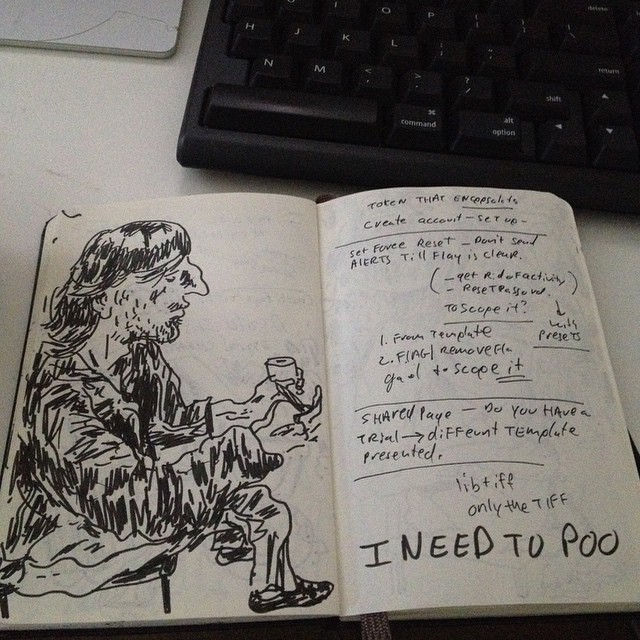 U I O P
delete
H J K L
return
N M < >
? /
shift
⌘
command
alt
option
TOKEN THAT ENCAPSULATES
Create account - SET UP -
set Force Reset - Don't Send
ALERTS Till Flag is clear.
( - get Rid of activity )
- Reset Password.
TO SCOPE it?
↓
with
PRESETS
1. From Template
2. FlAG | REMOVE Fla
goal to Scope it
SHARED PAGE — DO YOU HAVE A
TRIAL → different TEMPLATE
presented.
libtiff
only the TIFF
I NEED TO POO